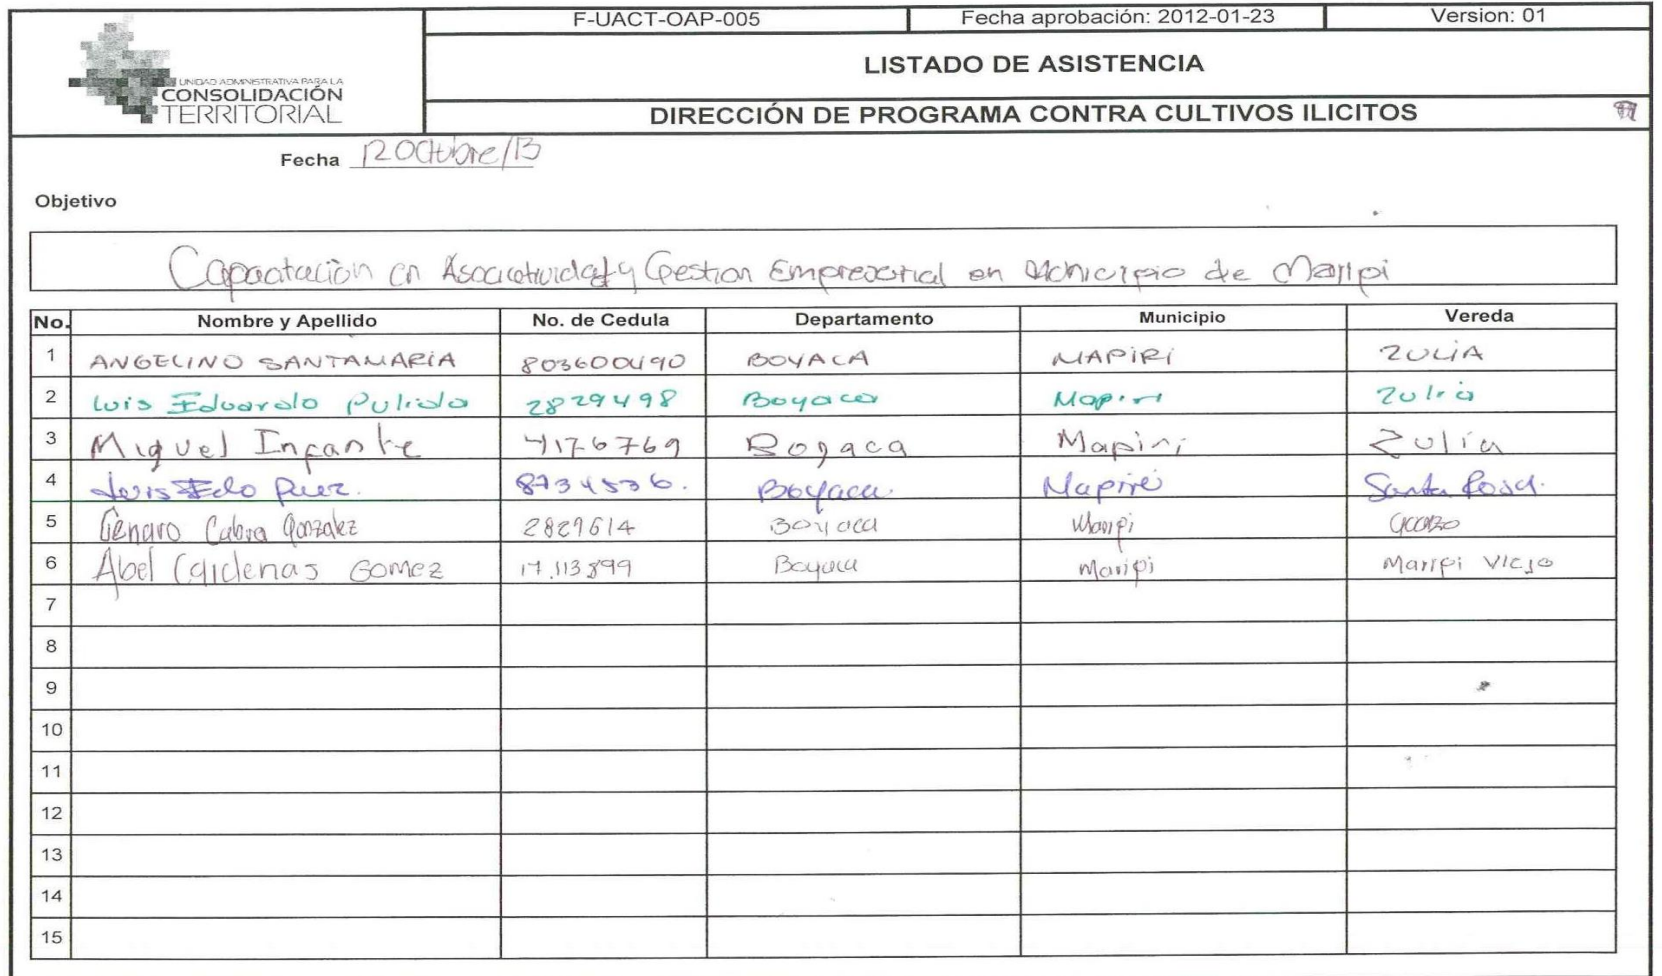 F-UACT-OAP-005 Fecha aprobación: 2012-01-23 Version: 01
UNIDAD ADMINISTRATIVA PARA LA
CONSOLIDACIÓN
TERRITORIAL
LISTADO DE ASISTENCIA
DIRECCIÓN DE PROGRAMA CONTRA CULTIVOS ILICITOS
Fecha 12 Octubre/13
Objetivo
Capacitación en Asociatividad y Gestion Empresarial en Municipio de Maripi
No. Nombre y Apellido No. de Cedula Departamento Municipio Vereda
1 ANGELINO SANTAMARIA 803600490 BOYACA MAPIRI ZULIA
2 Luis Eduardo Pulido 2829498 Boyaca Mapiri Zulia
3 Miguel Infante 4176769 Boyaca Mapiri Zulia
4 Luis Edo 8734536. Boyaca Mapiri Santa Rosa.
5 Genaro Cabra Gonzalez 2829614 Boyaca Maripi
6 Abel Cardenas Gomez 17.113.899 Boyaca Maripi Maripi Viejo
7
8
9
10
11
12
13
14
15